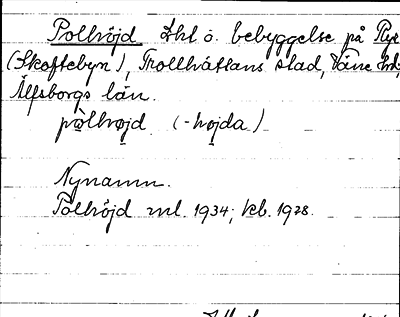 Pollhöjd Lht o. bebyggelse på Rye
(Skoftebyn), Trollhättans stad, Väne hd,
Älfsborgs län.
pòlhøjd (-højda)
Nynamn.
Pollhöjd ml. 1934; kb. 1928.